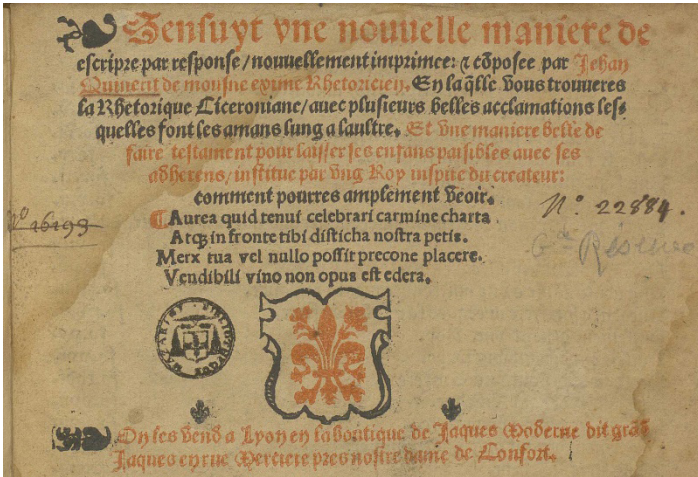 Sensuyt vne nouuelle maniere de
escripre par response/nouuellement imprimee: ⁊ cõposee par Jehan
Quinerit de monsne exime Rhetoricien. En laq̃lle vous trouueres
la Rhetorique Ciceroniane/auec plusieurs belles acclamations les⸗
quelles font les amans lung a laultre. Et vne maniere belle de
faire testament pour laisser ses enfans paisibles auec ses
adherens/institue par vng Roy inspire du createur:
comment pourres amplement veoir.
¶Aurea quid tenui celebrari carmine charta
Atqꝫ in fronte tibi disticha nostra petis.
Merx tua vel nullo possit precone placere.
Vendibili vino non opus est edera.
Nº 16193
Nº. 22884.
Réserve
On les vend a Lyon en la boutique de Jaques Moderne dit grãd
Jaques en rue Merciere pres nostre dame de Confort.